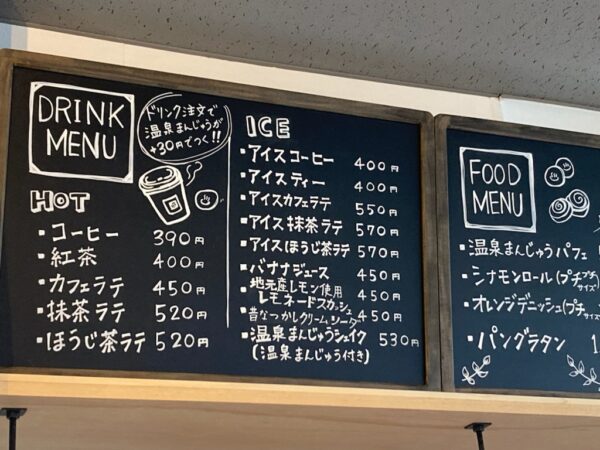 DRINK
MENU
ドリンク注文で
温泉まんじゅうが
+30円でつく!!
HOT
・コーヒー 390円
・紅茶 400円
・カフェラテ 450円
・抹茶ラテ 520円
・ほうじ茶ラテ 520円
ICE
・アイスコーヒー 400円
・アイスティー 400円
・アイスカフェラテ 550円
・アイス抹茶ラテ 570円
・アイスほうじ茶ラテ 570円
・バナナジュース 450円
・地元産レモン使用
レモネードスカッシュ 450円
・昔なつかしクリームソーダ 450円
・温泉まんじゅうシェイク 530円
(温泉まんじゅう付き)
FOOD
MENU
・温泉まんじゅうパフェ
・シナモンロール(プチサイズ)
・オレンジデニッシュ(プチサイズ)
・パングラタン